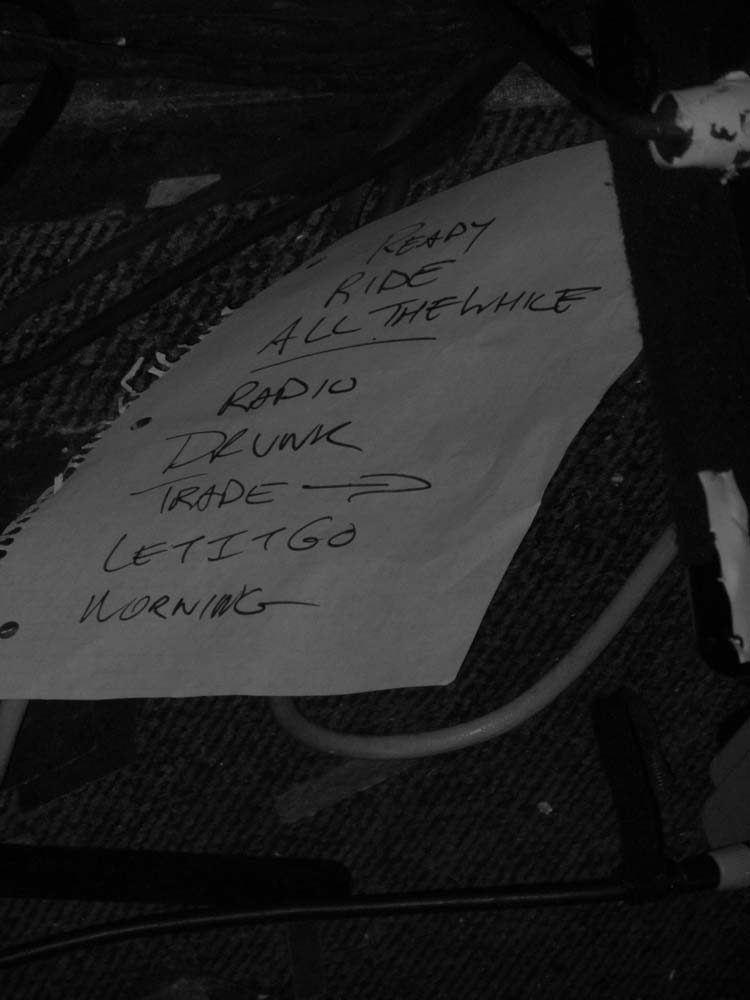 READY
RIDE
ALL THE WHILE
RADIO
DRUNK
TRADE →
LET IT GO
MORNING